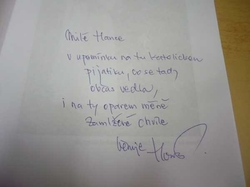 Milé Hance
v upomínku na tu
pijatiku, co se tady
občas vedla,
i na ty oparem méně
zamlžené chvíle
věnuje